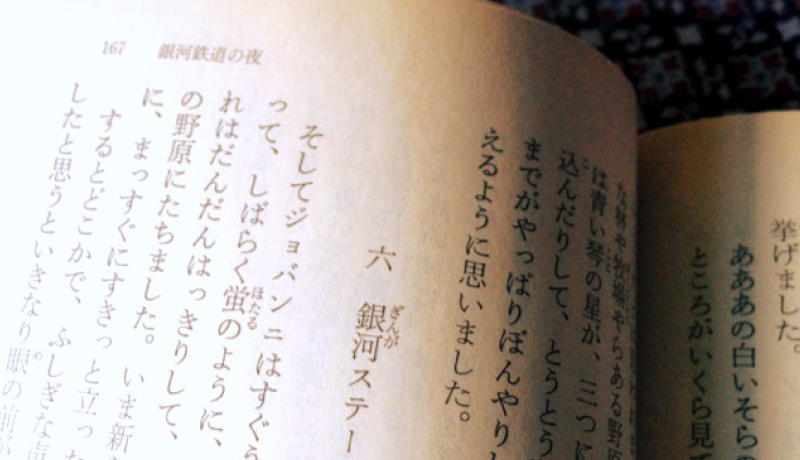 挙げました。
あああの白いそらの
ところがいくら見て
な林や牧場やらある野原
は青い琴の星が、三つに
込んだりして、とうとう
までがやっぱりぼんやりし
えるように思いました。
六 銀河ステー
そしてジョバンニはすぐう
って、しばらく蛍のように、
れはだんだんはっきりして、
の野原にたちました。いま新
に、まっすぐにすきっと立った
するとどこかで、ふしぎな声
したと思うといきなり眼の前が
167 銀河鉄道の夜